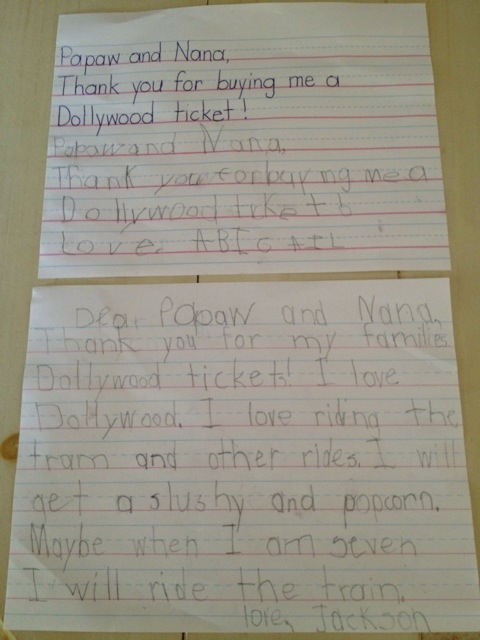 Papaw and Nana,
Thank you for buying me a
Dollywood ticket!
Papaw and Nana,
Thank you for buying me a
Dollywood ticket!
Love, ABIGAIL
Dear Papaw and Nana,
Thank you for my families
Dollywood tickets! I love
Dollywood. I love riding the
tram and other rides. I will
get a slushy and popcorn.
Maybe when I am seven
I will ride the train.
love, Jackson